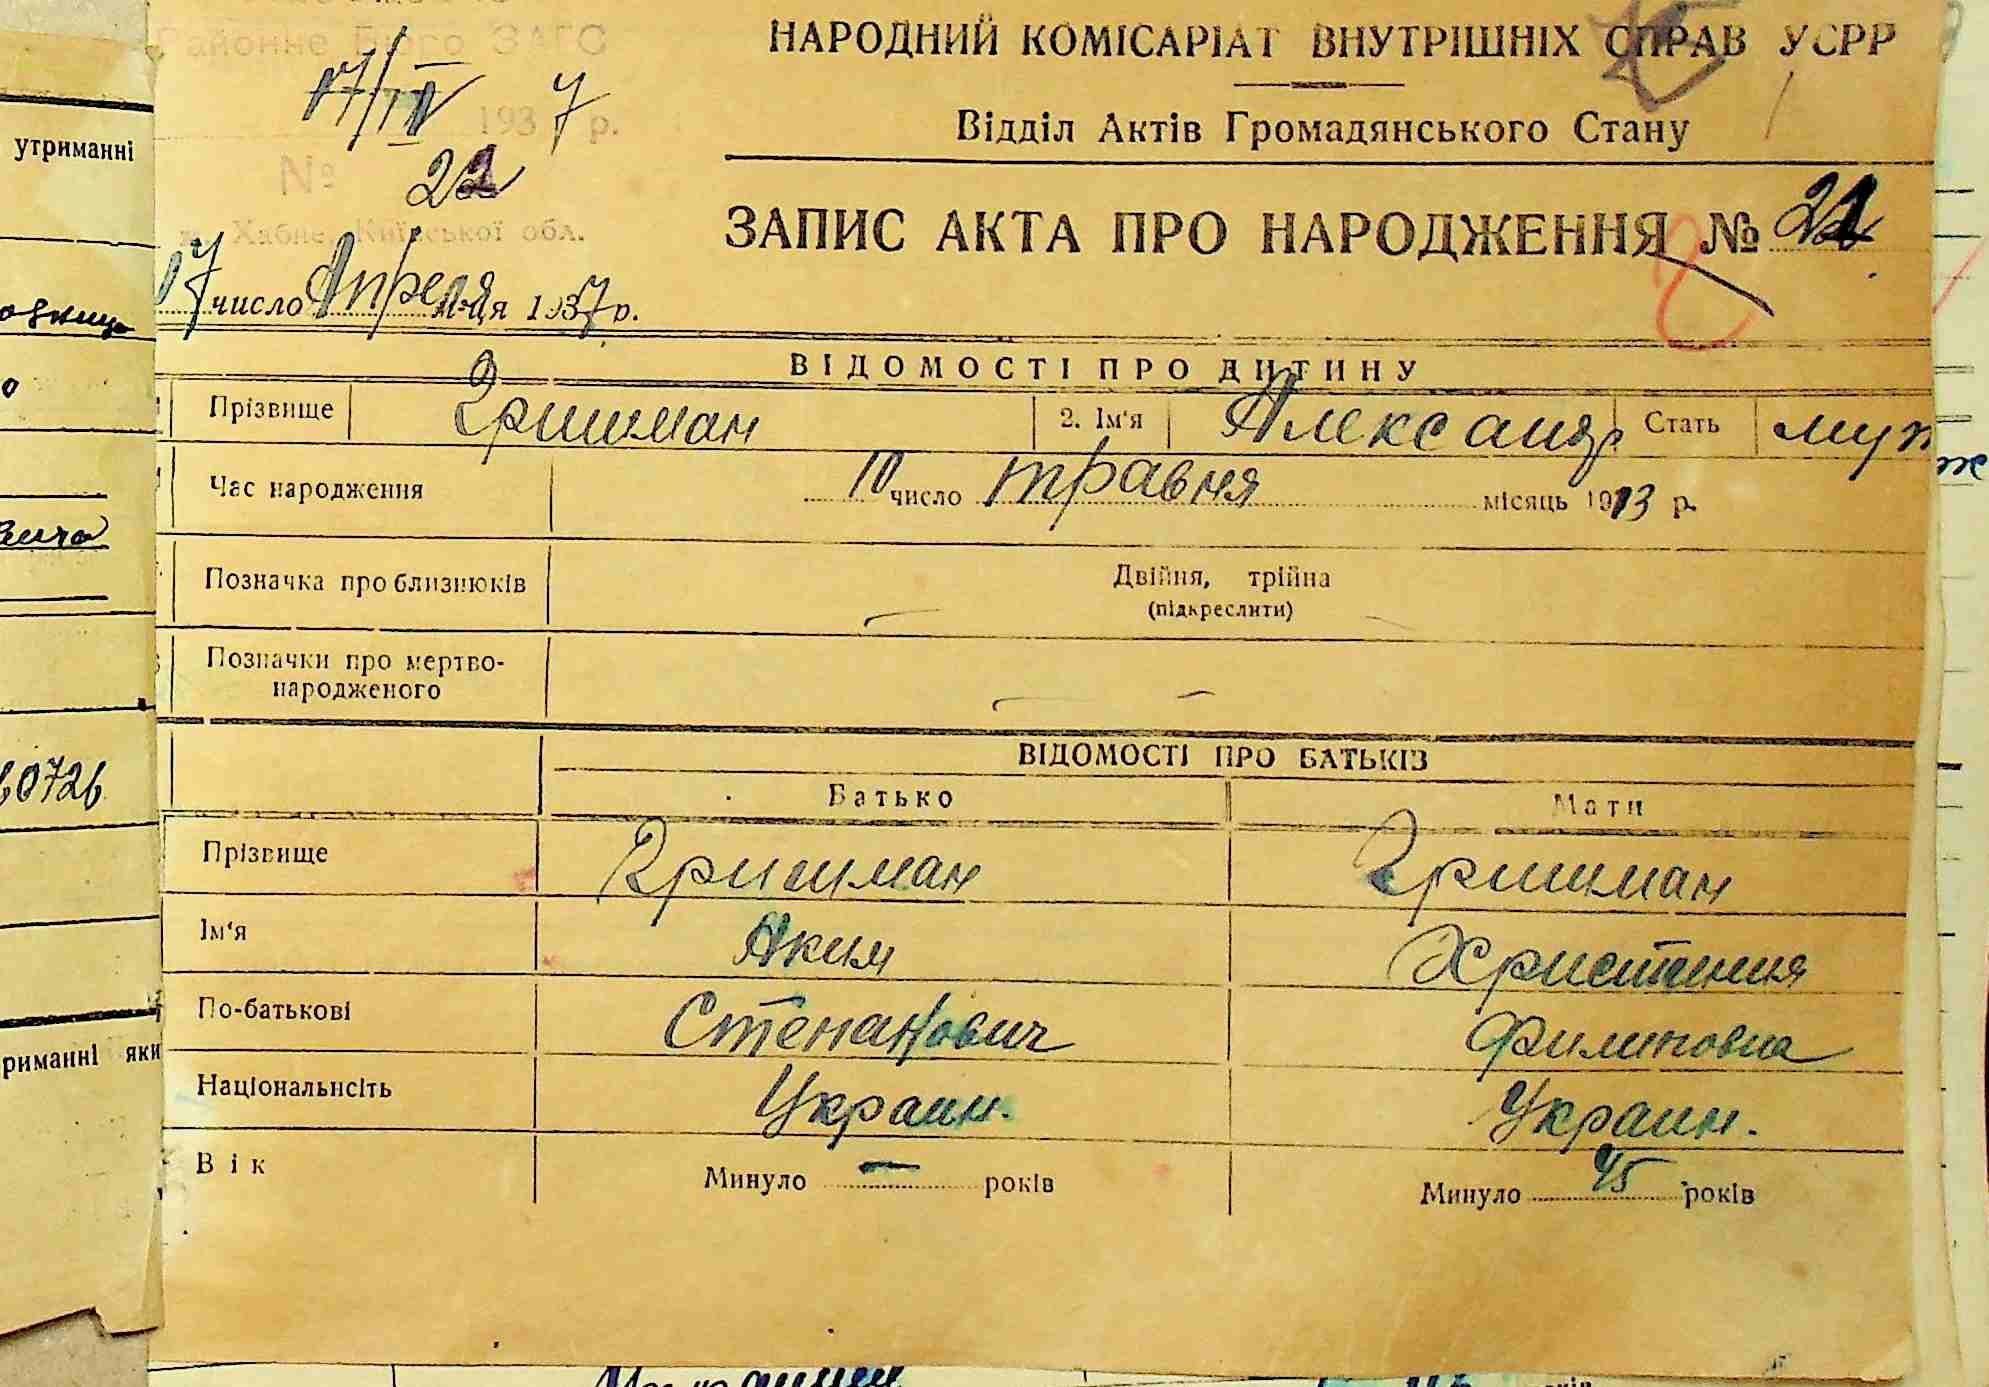 Районне Бюро ЗАГС
17/IV 1937 р.
№ 21
м. Хабне, Київської обл.
17 число Апреля м-ця 1937 р.
НАРОДНИЙ КОМІСАРІАТ ВНУТРІШНІХ СПРАВ УСРР
Відділ Актів Громадянського Стану
ЗАПИС АКТА ПРО НАРОДЖЕННЯ № 21
ВІДОМОСТІ ПРО ДИТИНУ
Прізвище Гришман 2. Ім'я Александр Стать муж
Час народження 10 число травня місяць 1913 р.
Позначка про близнюків Двійня, трійна
(підкреслити)
Позначки про мертво-
народженого
ВІДОМОСТІ ПРО БАТЬКІВ
Батько Мати
Прізвище Гришман Гришман
Ім'я Аким Христиния
По-батькові Степанович Филиповна
Національнсіть Украин. Украин.
Вік Минуло — років Минуло 45 років
утриманні
60726
риманні яки